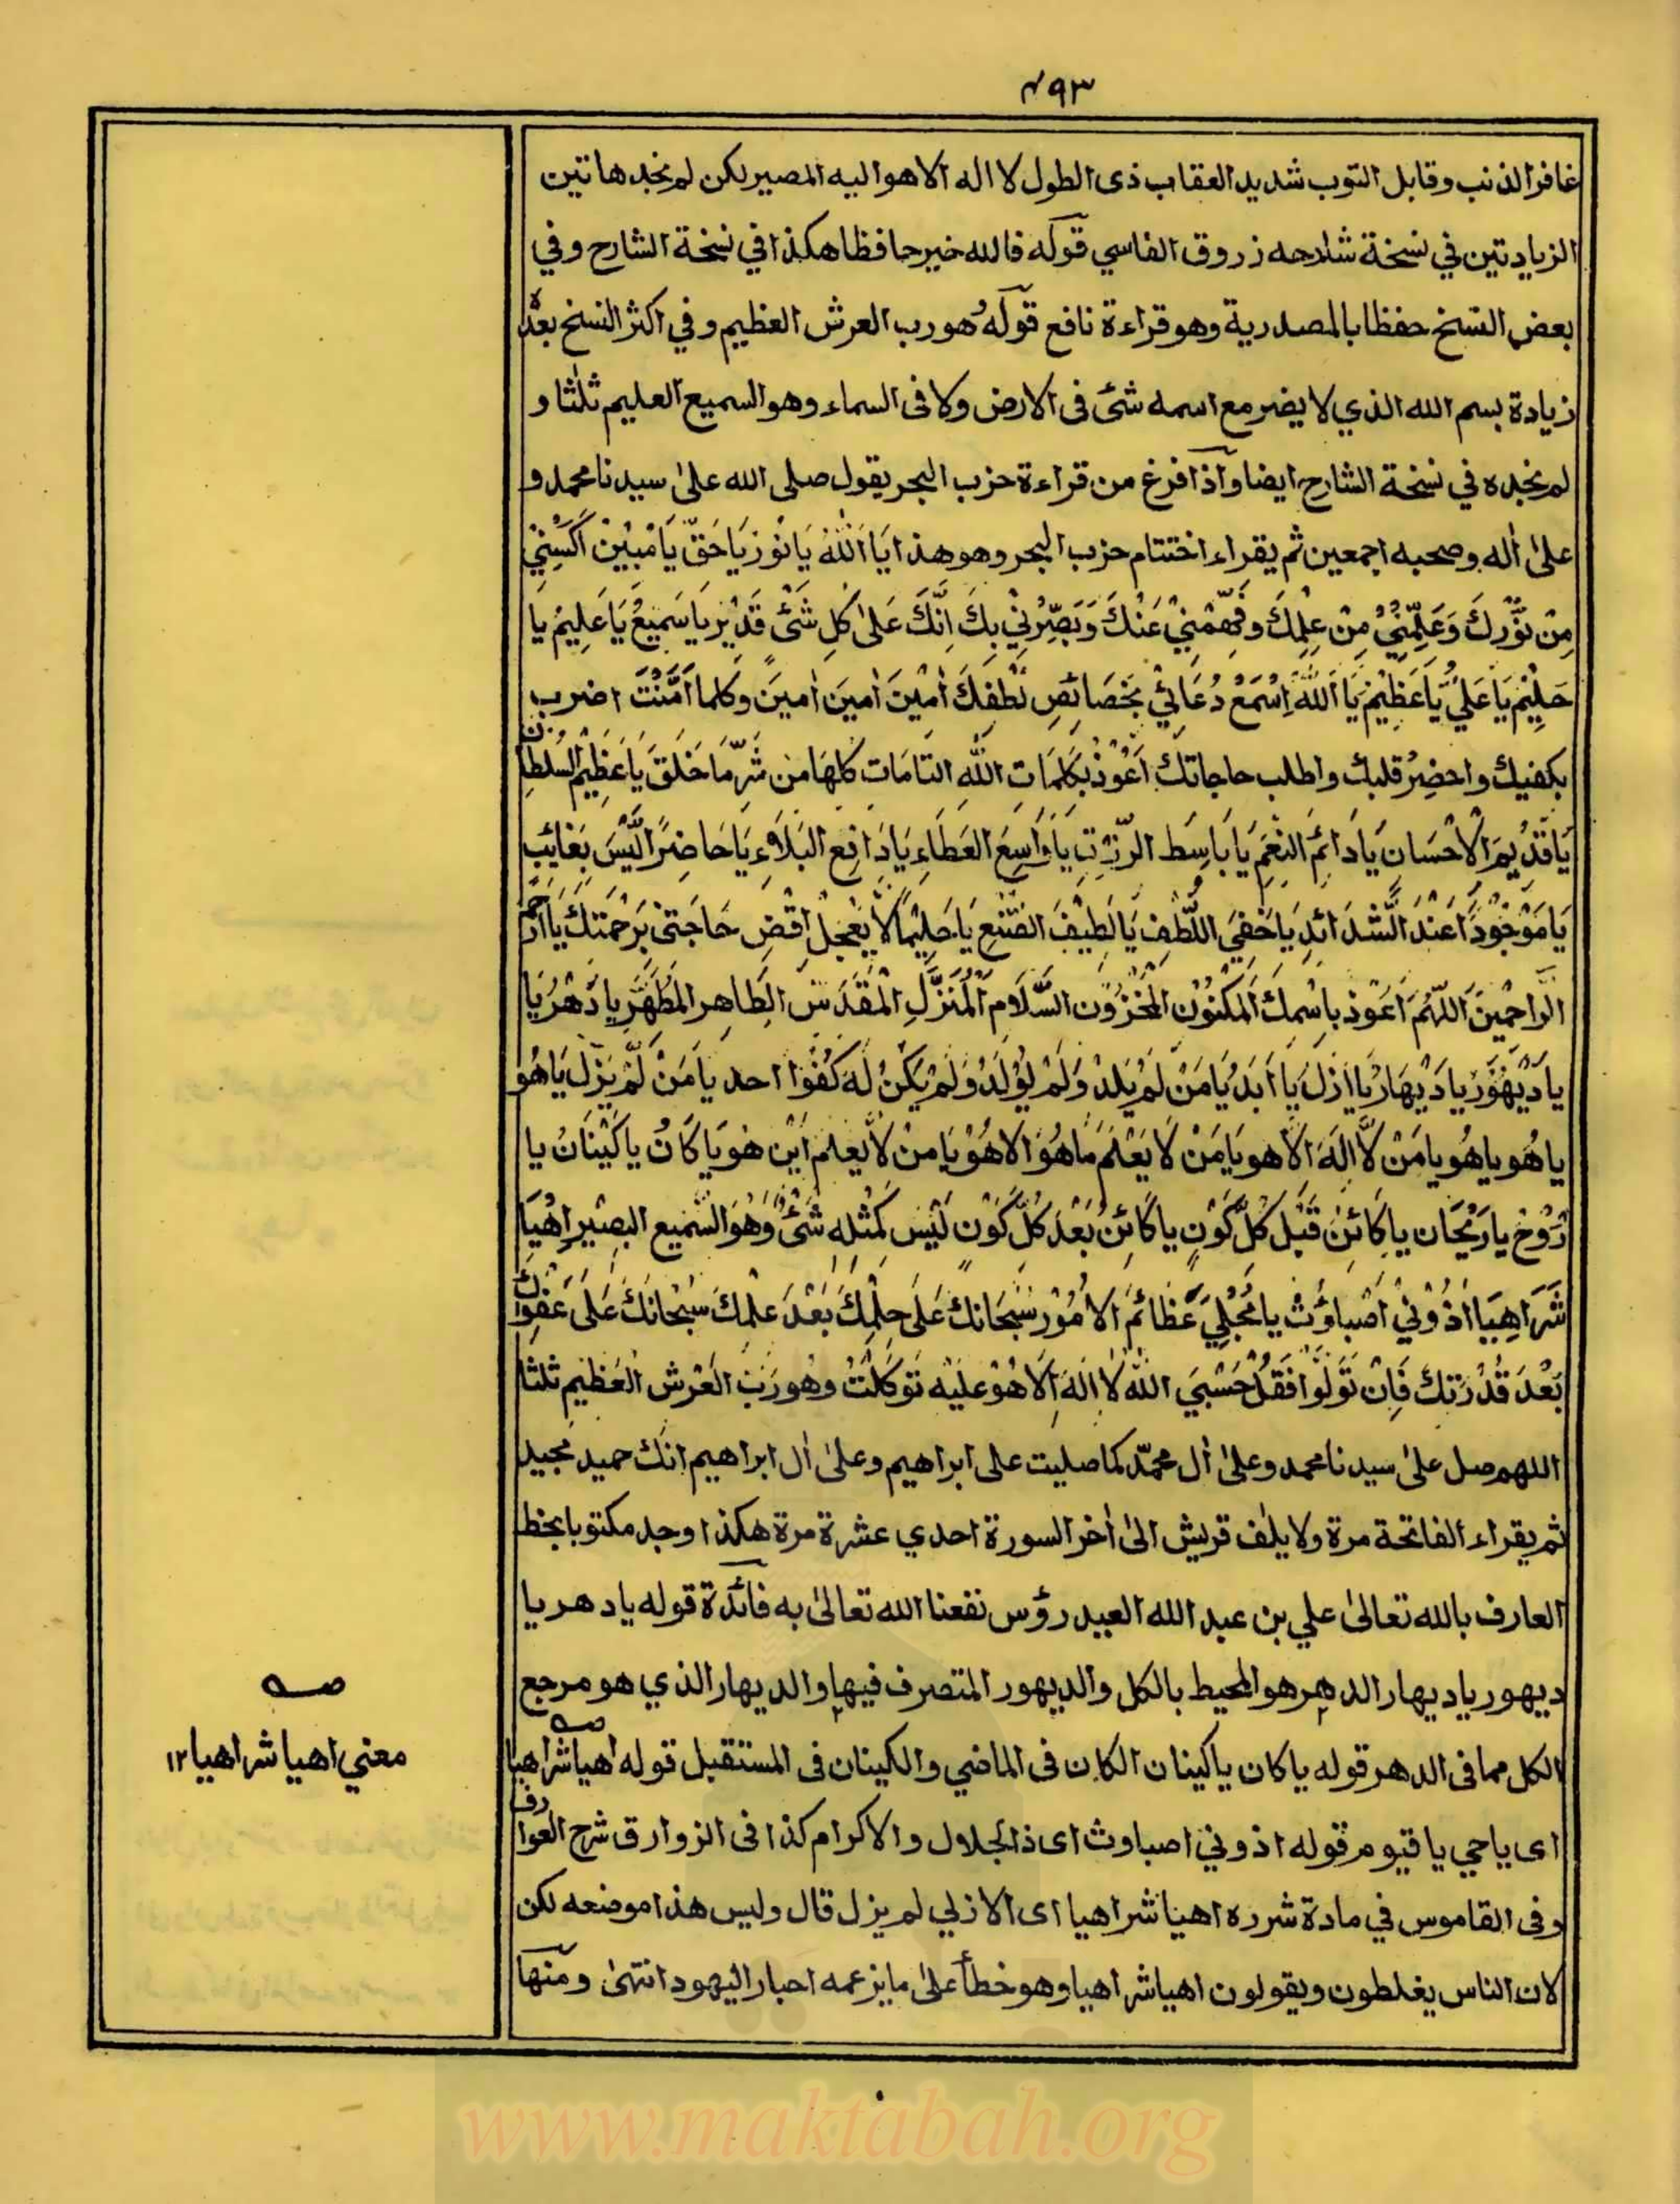 ٤٩٣
غافر الذنب وقابل التوب شديد العقاب ذى الطول لا اله الا هو اليه المصير لكن لم نجد هاتين
الزيادتين في نسخة شلاحه زروق الفاسي قوله فالله خير حافظا هكذا في نسخة الشارح وفي
بعض النسخ حفظا بالمصدرية وهو قراءة نافع قوله هو رب العرش العظيم وفي اكثر النسخ بعده
زيادة بسم الله الذي لا يضر مع اسمه شئ فى الارض ولا فى السماء وهو السميع العليم ثلثا و
لم نجده في نسخة الشارح ايضا واذا فرغ من قراءة حزب البحر يقول صلى الله على سيدنا محمد و
على اله وصحبه اجمعين ثم يقراء اختتام حزب البحر وهو هذا يَا اَللّٰهُ يَا نُوْرُ يَا حَقُّ يَا مُبِيْنُ اَكْسِنِيْ
مِنْ نُوْرِكَ وَعَلِّمْنِيْ مِنْ عِلْمِكَ وَفَهِّمْنِيْ عَنْكَ وَبَصِّرْنِيْ بِكَ اِنَّكَ عَلىٰ كُلِ شَئْ قَدْيْر يَا سَمِيعُ يَا عَلِيمُ يا
حَلِيْمُ يَا عَلِيُّ يَا عَظِيْمُ يَا اَللّٰهُ اِسْمَعْ دُعَائِيْ بِخَصَائِصِ لُطْفِكَ اٰمِيْنَ اٰمِينَ اٰمِينَ وَكلما اَمَّنْتَ اضرب
بكفيك واحضِرْ قلبك واطلب حاجاتك اَعُوْذُ بِكَلِمَات اللّٰهِ التامَات كلهَا من شَرِّ مَا خَلَقَ يَا عَظِيْمَ السُّلطان
يَا قَدِيْمَ الْاِحْسَان يَا دَائِمَ النِعَمِ يَا بَاسِطَ الرِّزْقِ يَا وَاسِعَ العَطَاءِ يَا دَافِعَ البَلَاءِ يَا حَاضِرًا لَيْسَ بِغَائِبٍ
يَا مَوْجُوْدًا عِنْدَ الشَّدَائِدِ يَا خَفِيَ اللُّطْفِ يَا لَطِيْفَ الصُّنْعِ يَا حَلِيْمًا لَا يَعْجِلْ اقْضِ حَاجَتِيْ بَرَحْمَتِكَ يَا اَرْحَمَ
الرَّاحِمِيْنَ اَللّٰهُمَ اَعُوْذ باسْمِكَ اَلمَكْنُوْن المَخْزُوْن السَّلَامِ الْمُنَزَّلِ المْقَدَسِ الطَاهِر المُطَهَّرِ يا دَهْرُ يَا
يا دَيْهُوْرُ يا دَيْهَارُ يا ازَلُ يَا اَبَدُ يَا مَنْ لَمْ يَلِدْ وَلَمْ يُوْلَدْ وَلَمْ يَكُنْ لَهُ كُفُوًا احد يا مَنْ لَمْ يَزَلْ يَا هُو
يا هُو يا هُو يا مَنْ لَا اِلَهَ الَّا هو يَا مَنْ لَا يَعْلَمُ مَا هُوَ الا هُوْ يَا مَنْ لَا يَعلم اَيْنَ هُو يَا كَانُ يا كَيْنَانُ يا
رُوْحُ يا رَيْحَان يا كائِنْ قَبْل كُلِّ كَوْنٍ يا كَائِنُ بَعْدَ كُلِّ كَوْن لَيْسَ كَمِثْلِهِ شَئْ وَهُوَ السَّمِيع البصيْرُ اهْيَا
شَرَاهِيَا اَذُوْنِيْ اَصْبَاؤُث يا مُجْلِيَ عَظَائِمَ الامُوْر سُبْحَانك عَلىَ حِلْمِكَ بَعْدَ عِلْمِكَ سُبْحَانَكَ عَلىَ عَفْوِكَ
بَعْدَ قُدْرَتِكَ فَاِنْ تَوَلَّوْا فَقُلْ حَسْبِيَ اللّٰه لَا اِلَهَ اِلَّا هُوْ عَلَيْه تَوَكَلْتُ وهُو رَبُ العَرْش العَظيمِ ثلثا
اللهم صل على سيدنا محمد وعلى اٰل محمّد كما صليت على ابراهيم وعلى اٰل ابراهيم انك حميد مجيد
ثم يقراء الفاتحة مرة ولايلٰف قريش الىٰ اٰخر السورة احدي عشرة مرة هكذا وجد مكتوبا بخط
العارف بالله تعالىٰ علي بن عبد الله العيدرؤس نفعنا الله تعالىٰ به فائدة قوله يا دهر يا
ديهور يا ديهار الدهر هو المحيط بالكل والديهور المتصرف فيها والديهار الذي هو مرجع
الكل مما فى الدهر قوله يا كان يا كينان الكان فى الماضي والكينان فى المستقبل قوله اهيا شراهيا
اى يا حي يا قيوم قوله اذوني اصباوث اى ذا الجلال والاكرام كذا فى الزوارق شرح العوارف
وفى القاموس في مادة شرره اهيا شراهيا اى الازلي لم يزل قال وليس هذا موضعه لكن
لان الناس يغلطون ويقولون اهيا شراهيا وهو خطأ علىٰ ما يزعمه احبار اليهود انتهىٰ ومنها
صه
معني اهيا شراهيا ١٢
www.maktabah.org